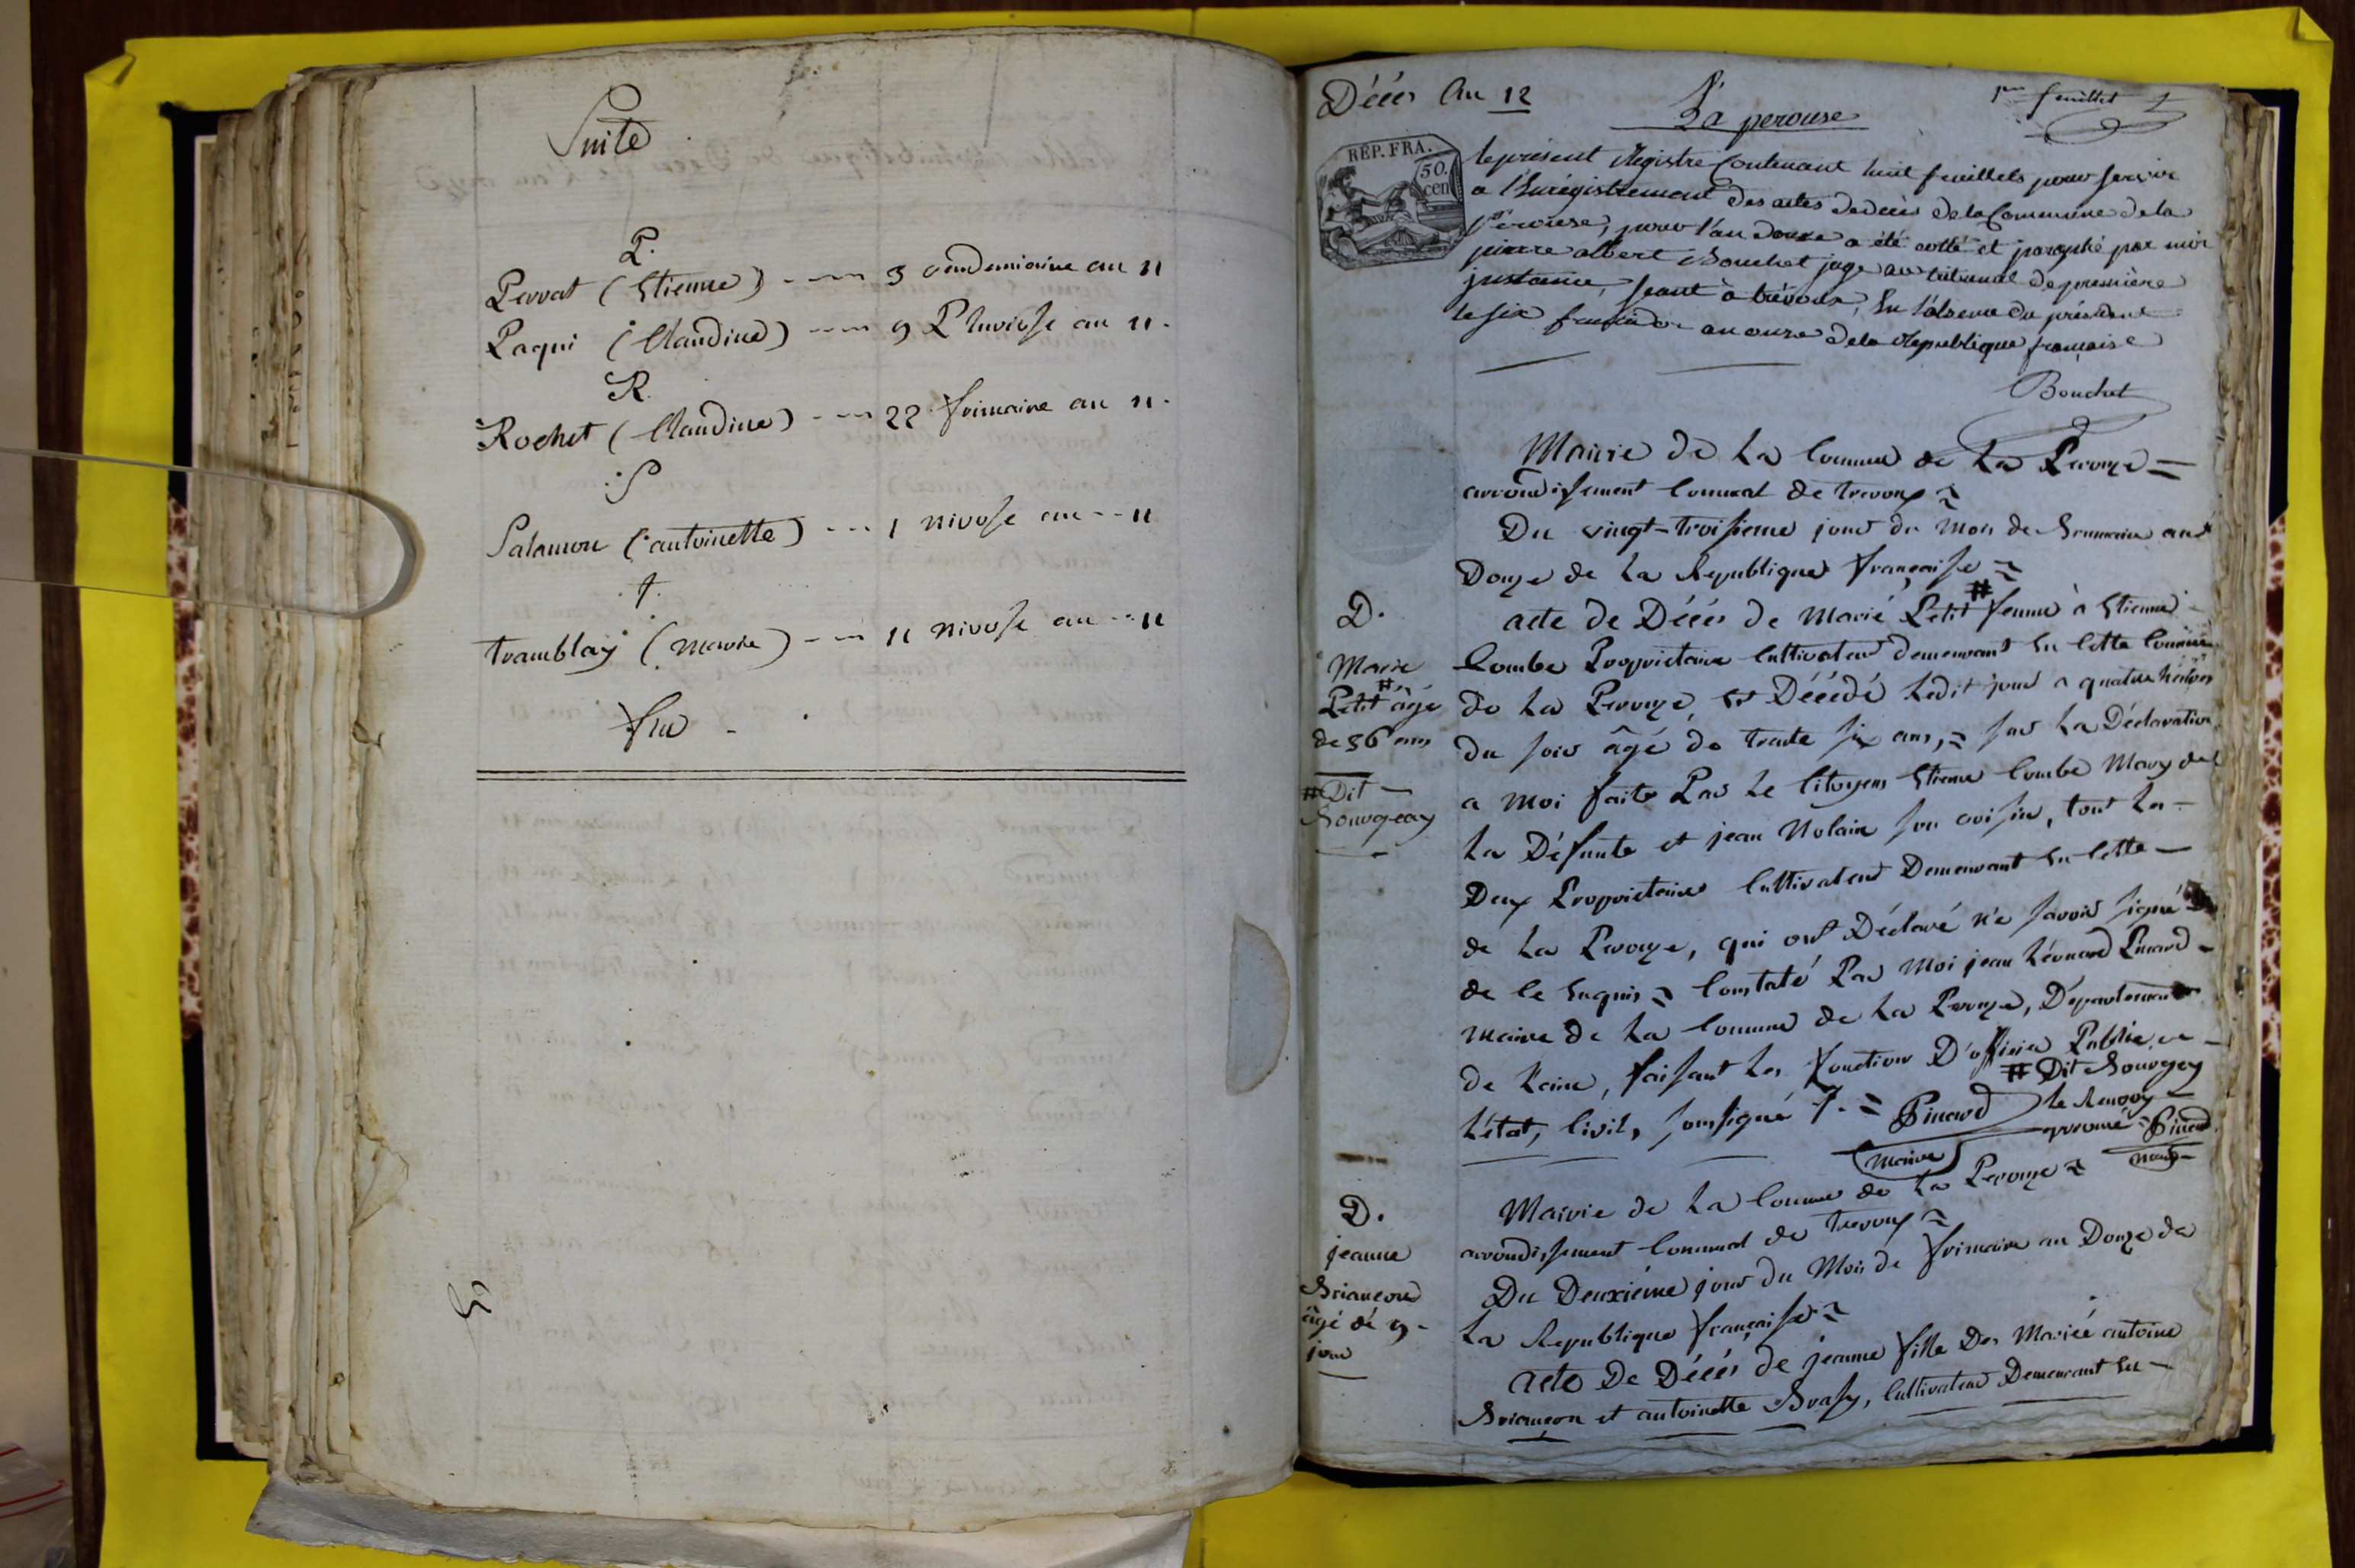 Suite
P.
Perrat (Etienne) --- 3 vendemiaire an 11
Paqui (Claudine) --- 9 Pluviose an 11.
R.
Rochet (Claudine) --- 22 frimaire an 11.
S
Salamon (antoinette) --- 1 nivose an -- 11
t.
tramblay (marie) --- 11 nivose an -- 11
fin
Décés An 12
La perouse
1er feuillet
REP. FRA.
50.
cen
le présent Registre Contenant huit feuillets pour servir
a l'Enregistrement des actes de decès de la Commune de la
Perouse, pour l'an douze a été cotté et paraphé par moi
pierre albert Bouchet juge au tribunal de première
instance, seant à trévoux, En l'absence du président
le six fructidor an onze de la Republique française
Bouchet
Mairie de La Commune de La Perouze =
arrondissement Communal de trevoux =
Du vingt-troisieme jour du Mois de Brumaire an
Douze de La Republique française =
D.
Marie
Petit # âgé
de 36 ans
# Dit
Bourgeay
acte de Décés de Marie Petit # femme à Etienne
Combe Proprietaire Cultivateur demeurant En Cette Commune
de La Perouze, est Décédé Ledit jour a quatre heures
du soir âgé de trente six ans, = sur La Déclaration
a moi faite Par Le Citoyens Etienne Combe Mary de
La Défunte et jean Nolain son voisin, tout Les
Deux Proprietaire Cultivateur Demeurant En Cette
de La Perouze, qui ont Déclaré Ne savoir signé
de Ce Enquis = Constaté Par Moi jean Léonard Pinard
maire de La Commune de La Perouze, Département
de L'ain, faisant Les fonction D'officier Public de
L'état, Civil, soussigné /. = Pinard
maire
# Dit Bourgey
le Renvoy
approuvé = Pinard
maire
D.
jeanne
Briancon
âgé de 9
jour
Mairie de La Commune de La Perouze =
arrondissement Communal de trevoux =
Du Deuxiéme jour du Mois de frimaire an Douze de
La Republique française =
acte De Décés de jeanne fille Des Mariée antoine
Briançon et antoinette Brasy, Cultivateur Demeurant En